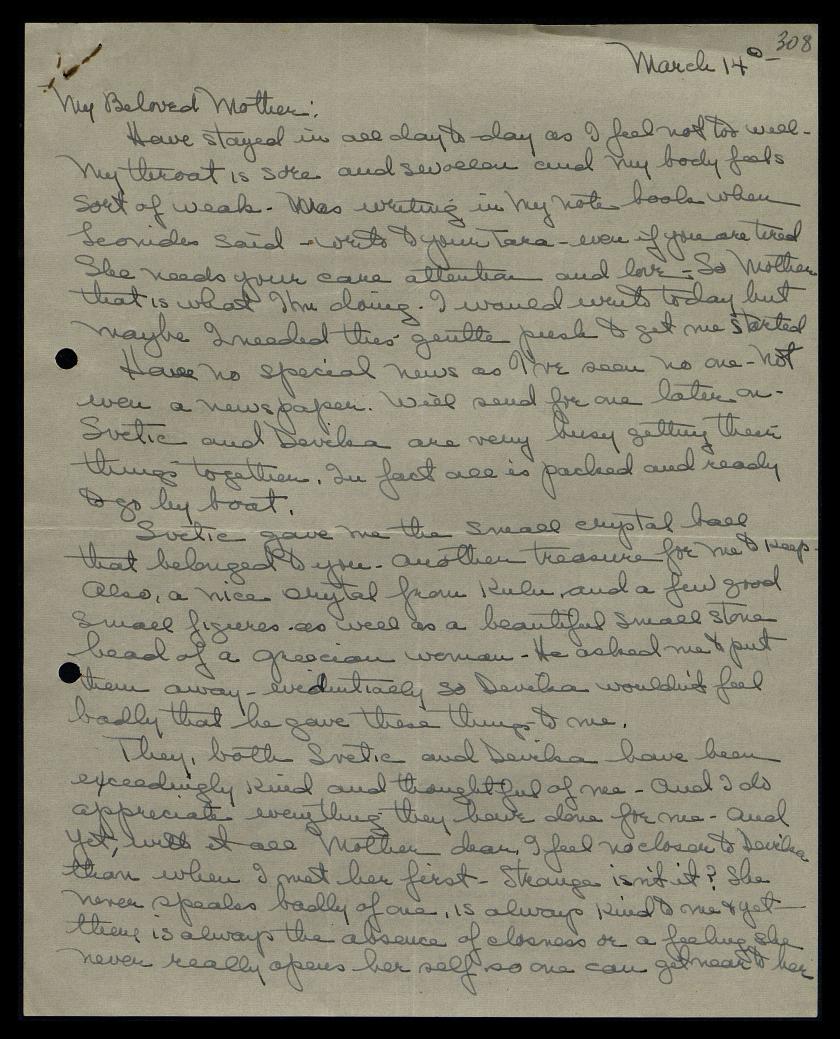 308
March 14º-
My Beloved Mother:
Have stayed in all day to-day as I feel not too well-
My throat is sore and swollen and my body feels
sort of weak. Was writing in my note book when
Leonides said - write to your Tara - even if you are tired
She needs your care attention and love - So Mother
that is what I'm doing. I would write today but
maybe I needed this gentle push to get me started
Have no special news as I've seen no one - not
even a newspaper. Will send for one later on-
Svetic and Devika are very busy getting their
things together. In fact all is packed and ready
to go by boat.
Svetic gave me the small crystal ball
that belonged to you - another treasure for me to keep.
Also, a nice crystal from Kulu, and a few good
small figures. as well as a beautiful small stone
head of a greecian woman - He asked me to put
them away - evidentially so Devika wouldn't feel
badly that he gave these things to me.
They, both Svetic and Devika have been
exceedingly kind and thoughtful of me - And I do
appreciate everything they have done for me - and
yet, with it all Mother dear, I feel no closer to Devika
than when I met her first - Strange isn't it? She
never speaks badly of one, is always kind to me & yet
there is always the absence of closness or a feeling she
never really opens her self so one can get near to her